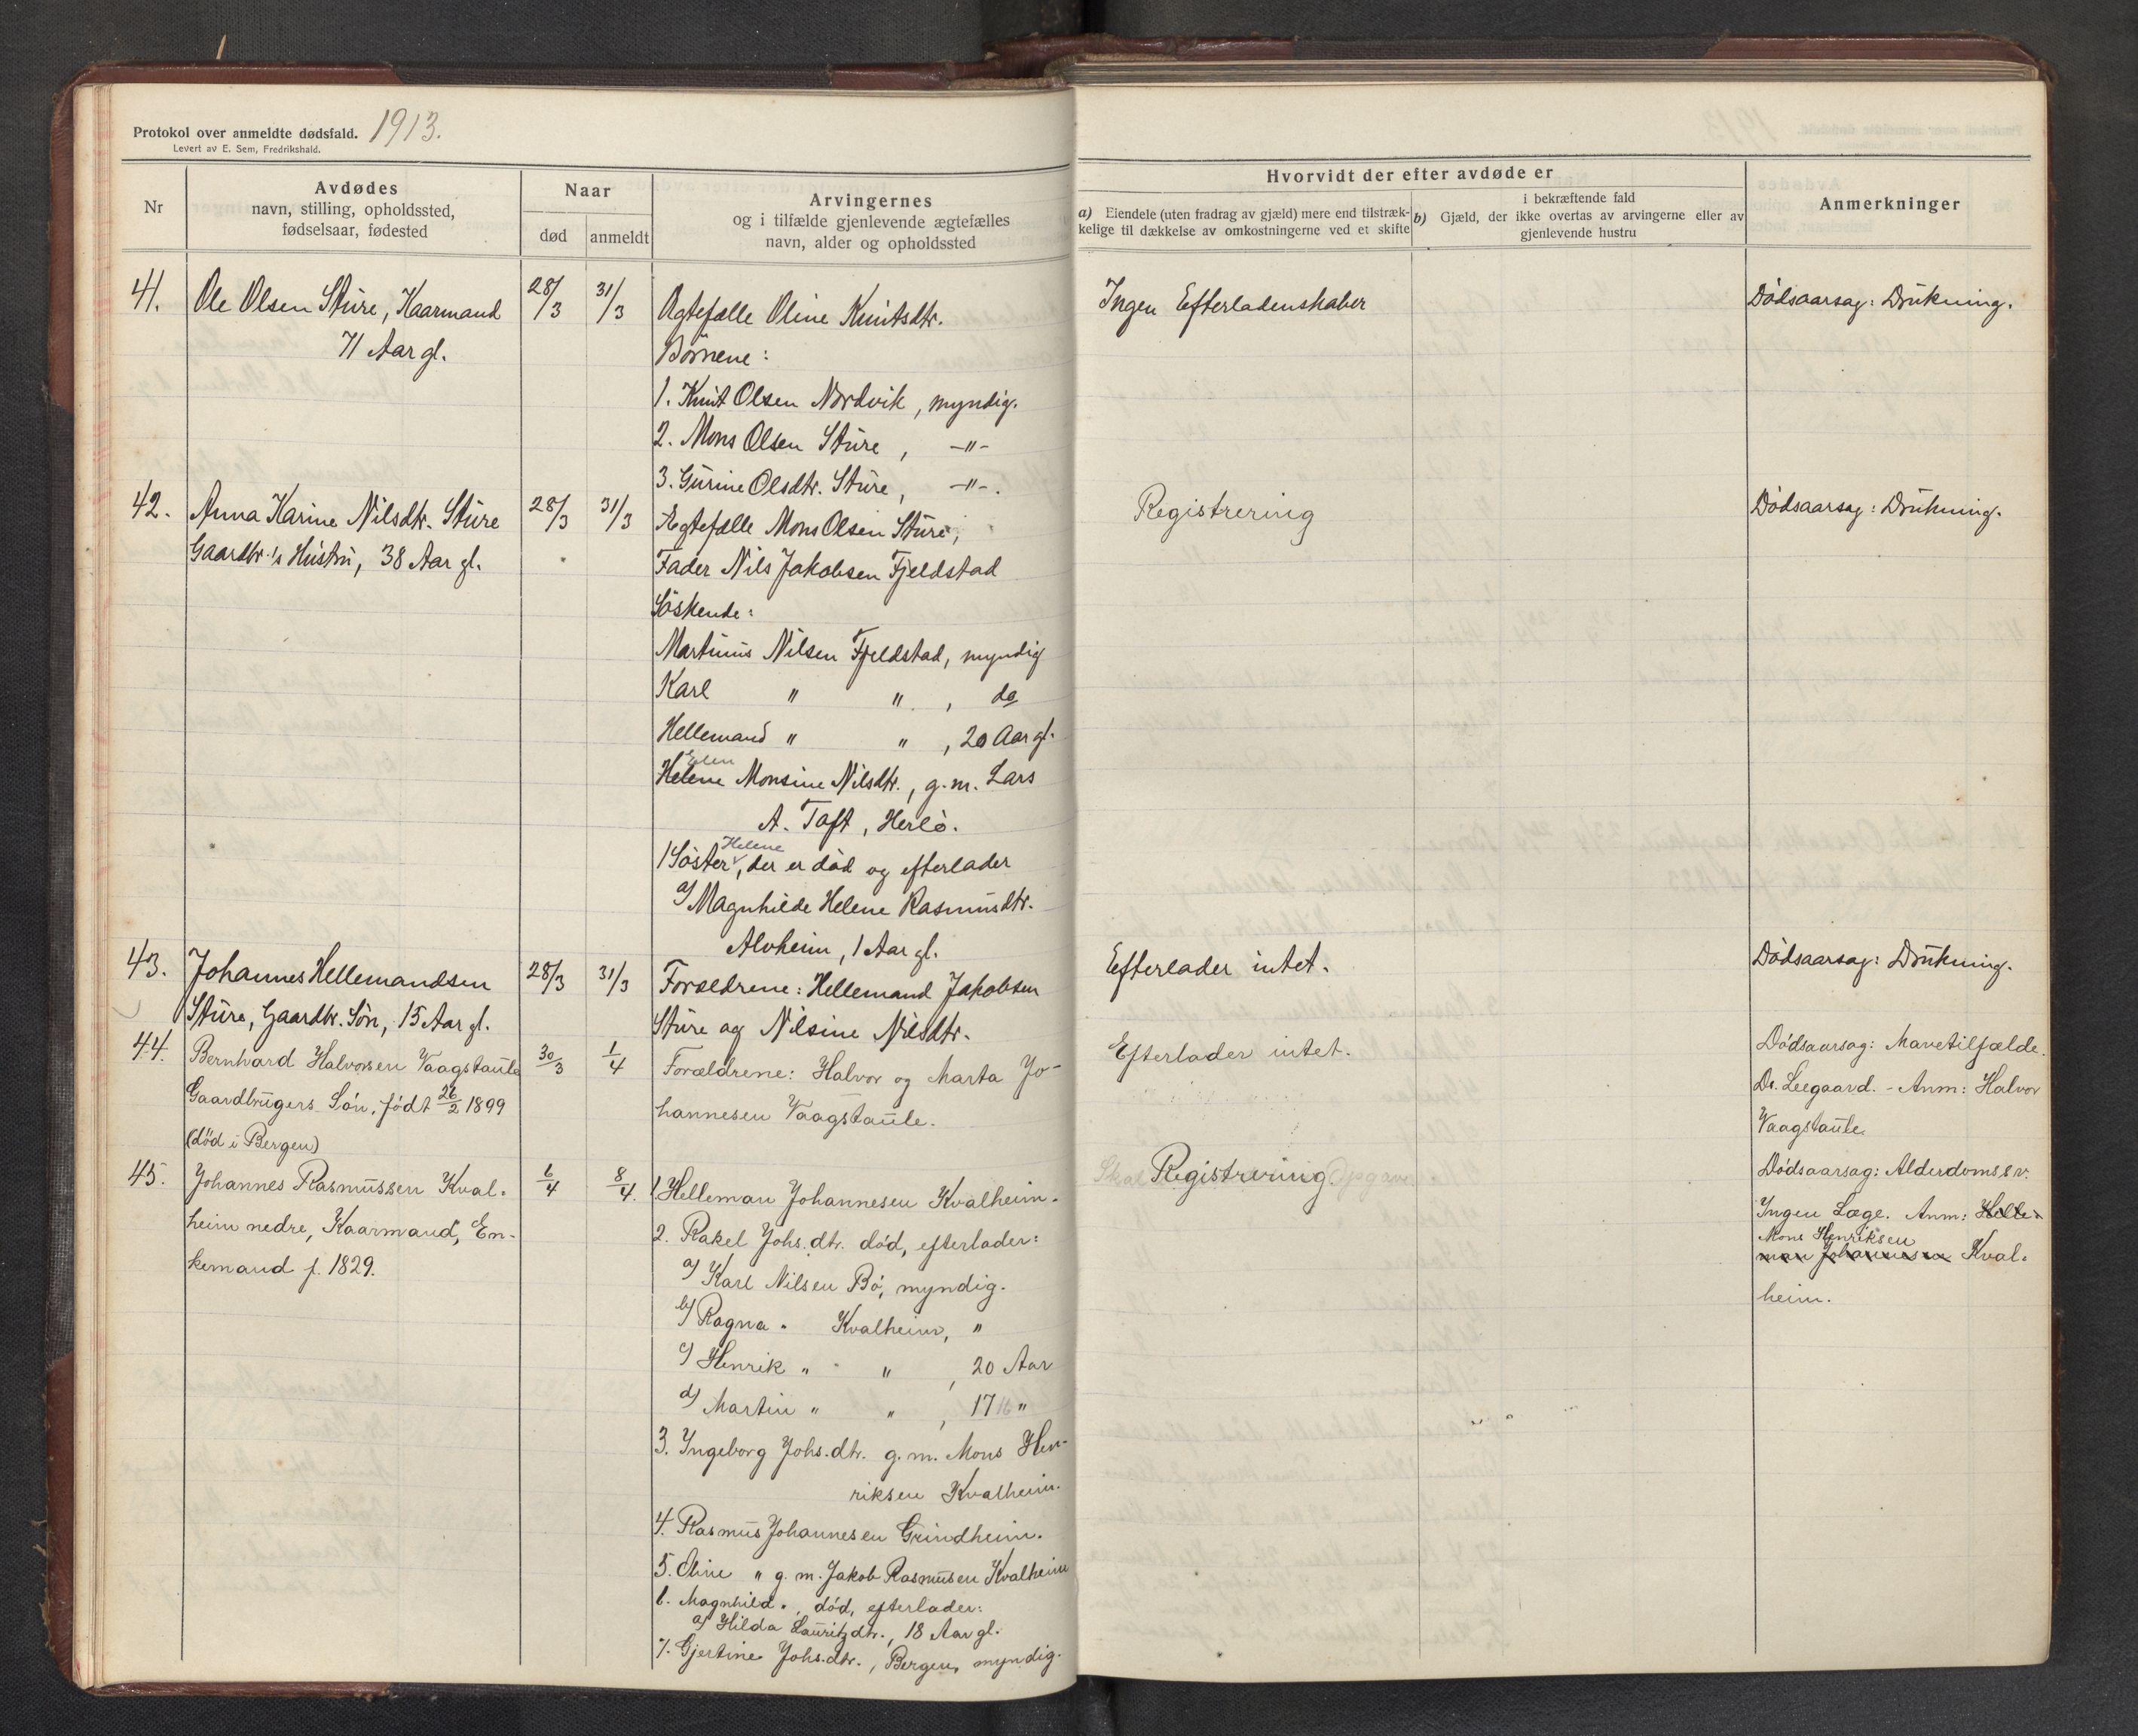 Protokol over anmeldte dødsfald. 1913.
Levert av E. Sem, Fredrikshald.
Nr
Avdødes
navn, stilling, opholdssted,
fødselsaar, fødested
Naar
død
anmeldt
Arvingernes
og i tilfælde gjenlevende ægtefælles
navn, alder og opholdssted
Hvorvidt der efter avdøde er
a) Eiendele (uten fradrag av gjæld) mere end tilstræk-
kelige til dækkelse av omkostningerne ved et skifte
b) Gjæld, der ikke overtas av arvingerne eller av
i bekræftende fald
gjenlevende hustru
Anmerkninger
41. Ole Olsen Sture, Kaarmand 28/3 31/3 Ægtefælle Oline Knutsdtr. Ingen Efterladenskaber Dødsaarsag: Drukning.
71 Aar gl. Børnene:
1. Knut Olsen Nordvik, myndig.
2. Mons Olsen Sture, -"-
3. Gurine Olsdtr. Sture, -"-.
42. Anna Karine Nilsdtr. Sture 28/3 31/3 Ægtefælle Mons Olsen Sture, Registrering Dødsaarsag: Drukning.
Gaardbr.'s Hustru, 38 Aar gl. Fader Nils Jakobsen Fjeldstad
Søskende:
Martinus Nilsen Fjeldstad, myndig
Karl " " , do
Hellemand " " , 20 Aar gl.
Elen
Helene Monsine Nilsdtr., g.m. Lars
A. Toft, Herlø.
Helene
1 Søster, der er død og efterlader
a) Magnhilde Helene Rasmusdtr.
Alvheim, 1 Aar gl.
43. Johannes Hellemandsen 28/3 31/3 Forældrene: Hellemand Jakobsen Efterlader intet. Dødsaarsag: Drukning.
Sture, Gaardbr. Søn, 15 Aar gl. Sture og Nilsine Nilsdtr.
44. Bernhard Halvorsen Vaagstaule 30/3 1/4 Forældrene: Halvor og Marta Jo- Efterlader intet. Dødsaarsag: Mavetilfælde.
Gaardbrugers Søn, født 26/2 1899 hannesen Vaagstaule. Dr. Leegaard. - Anm: Halvor
(død i Bergen) Vaagstaule
45. Johannes Rasmussen Kval- 6/4 8/4. 1. Helleman Johannesen Kvalheim. Skal Registrering Opgave Dødsaarsag: Alderdomssv.
heim nedre, Kaarmand, En- 2. Rakel Johs.dtr. død, efterlader: Ingen Læge. Anm: Helle-
Mons Henriksen
kemand f. 1829. a) Karl Nilsen Bø, myndig. man Johannesen Kval-
b) Ragna " Kvalheim, " heim.
c) Henrik " " , 20 Aar
d) Martin " " , 17 16 "
3. Ingeborg Johs.dtr. g.m. Mons Hen-
riksen Kvalheim.
4. Rasmus Johannesen Grindheim.
5. Oline " g.m. Jakob Rasmusen Kvalheim
6. Magnhild " død, efterlader:
a) Hilda Lauritzdtr., 18 Aar gl.
7. Gjertine Johs.dtr., Bergen, myndig.